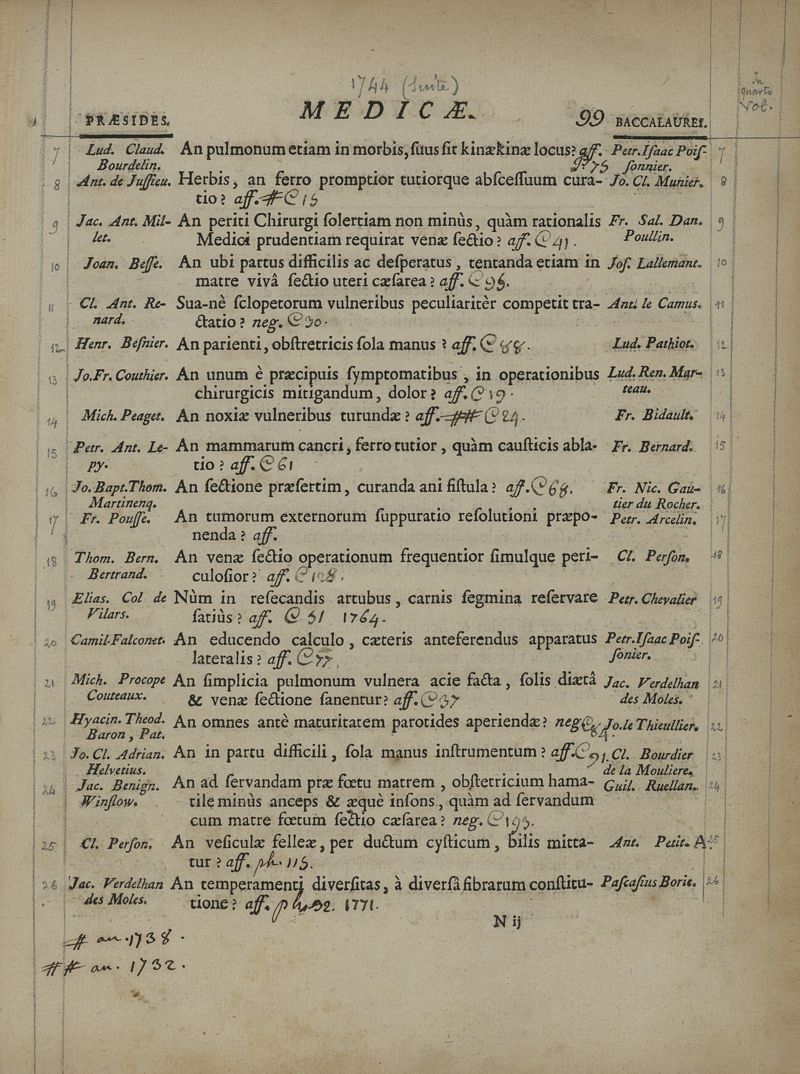 1744 (Suite)
in quarto Vol.
PRÆSIDES. MEDICÆ. 99 BACCALAUREI.
7 Lud. Claud. An pulmonum etiam in morbis, suus sit kinækinæ locus? aff. Petr. Isaac Pois- 7
Bourdelin. P. 75 sonnier.
8 Ant. de Jussieu. Herbis, an ferro promptior tutiorque abscessuum cura- Jo. Cl. Munier. 8
tio? aff. # C 15
9 Jac. Ant. Mil- An periti Chirurgi solertiam non minùs, quàm rationalis Fr. Sal. Dan. 9
let. Medici prudentiam requirat venæ sectio? aff. C 41. Poullin.
10 Joan. Besse. An ubi partus difficilis ac desperatus, tentanda etiam in Jos. Lallemant. 10
matre vivâ sectio uteri cæsarea? aff. C 96.
11 Cl. Ant. Re- Sua-nè sclopetorum vulneribus peculiaritèr competit tra- Ant. le Camus. 11
nard. ctatio? neg. C 30.
12 Henr. Besnier. An parienti, obstretricis sola manus? aff. C 88. Lud. Pathiot. 12
13 Jo. Fr. Couthier. An unum è præcipuis symptomatibus, in operationibus Lud. Ren. Mar- 13
chirurgicis mitigandum, dolor? aff. C 19. teau.
14 Mich. Peaget. An noxiæ vulneribus turundæ? aff. ## C 24. Fr. Bidault. 14
15 Petr. Ant. Le- An mammarum cancri, ferro tutior, quàm causticis abla- Fr. Bernard. 15
py. tio? aff. C 61
16 Jo. Bapt. Thom. An sectione præsertim, curanda ani fistula? aff. C 68. Fr. Nic. Gau- 16
Martinenq. tier du Rocher.
17 Fr. Pousse. An tumorum externorum suppuratio resolutioni præpo- Petr. Arcelin. 17
nenda? aff.
18 Thom. Bern. An venæ sectio operationum frequentior simulque peri- Cl. Person. 18
Bertrand. culosior? aff. C 128.
19 Elias. Col de Nùm in resecandis artubus, carnis segmina reservare Petr. Chevalier 19
Vilars. satiùs? aff. C 51 1764.
20 Camil. Falconet. An educendo calculo, cæteris anteferendus apparatus Petr. Isaac Pois- 20
lateralis? aff. C 77, sonier.
21 Mich. Procope An simplicia pulmonum vulnera acie facta, solis diætâ Jac. Verdelhan 21
Couteaux. & venæ sectione sanentur? aff. C 37 des Moles.
22 Hyacin. Theod. An omnes antè maturitatem parotides aperiendæ? neg. C Jo. le Thieullier. 22
Baron, Pat.
23 Jo. Cl. Adrian. An in partu difficili, sola manus instrumentum? aff. C 91. Cl. Bourdier 23
Helvetius. de la Mouliere.
24 Jac. Benign. An ad servandam præ fœtu matrem, obstetricium hama- Guil. Ruellan. 24
Winslow. tile minùs anceps & æquè insons, quàm ad servandum
cum matre fœtum sectio cæsarea? neg. C 195.
25 Cl. Person. An vesiculæ felleæ, per ductum cysticum, bilis mitta- Ant. Petit. A 25
tur? aff. ph. 115.
26 Jac. Verdelhan An temperamenti diversitas, à diversâ fibrarum constitu- Pascasius Borie. 26
des Moles. tione? aff. 1771.
N ij
# an. 1738.
## an. 1732.